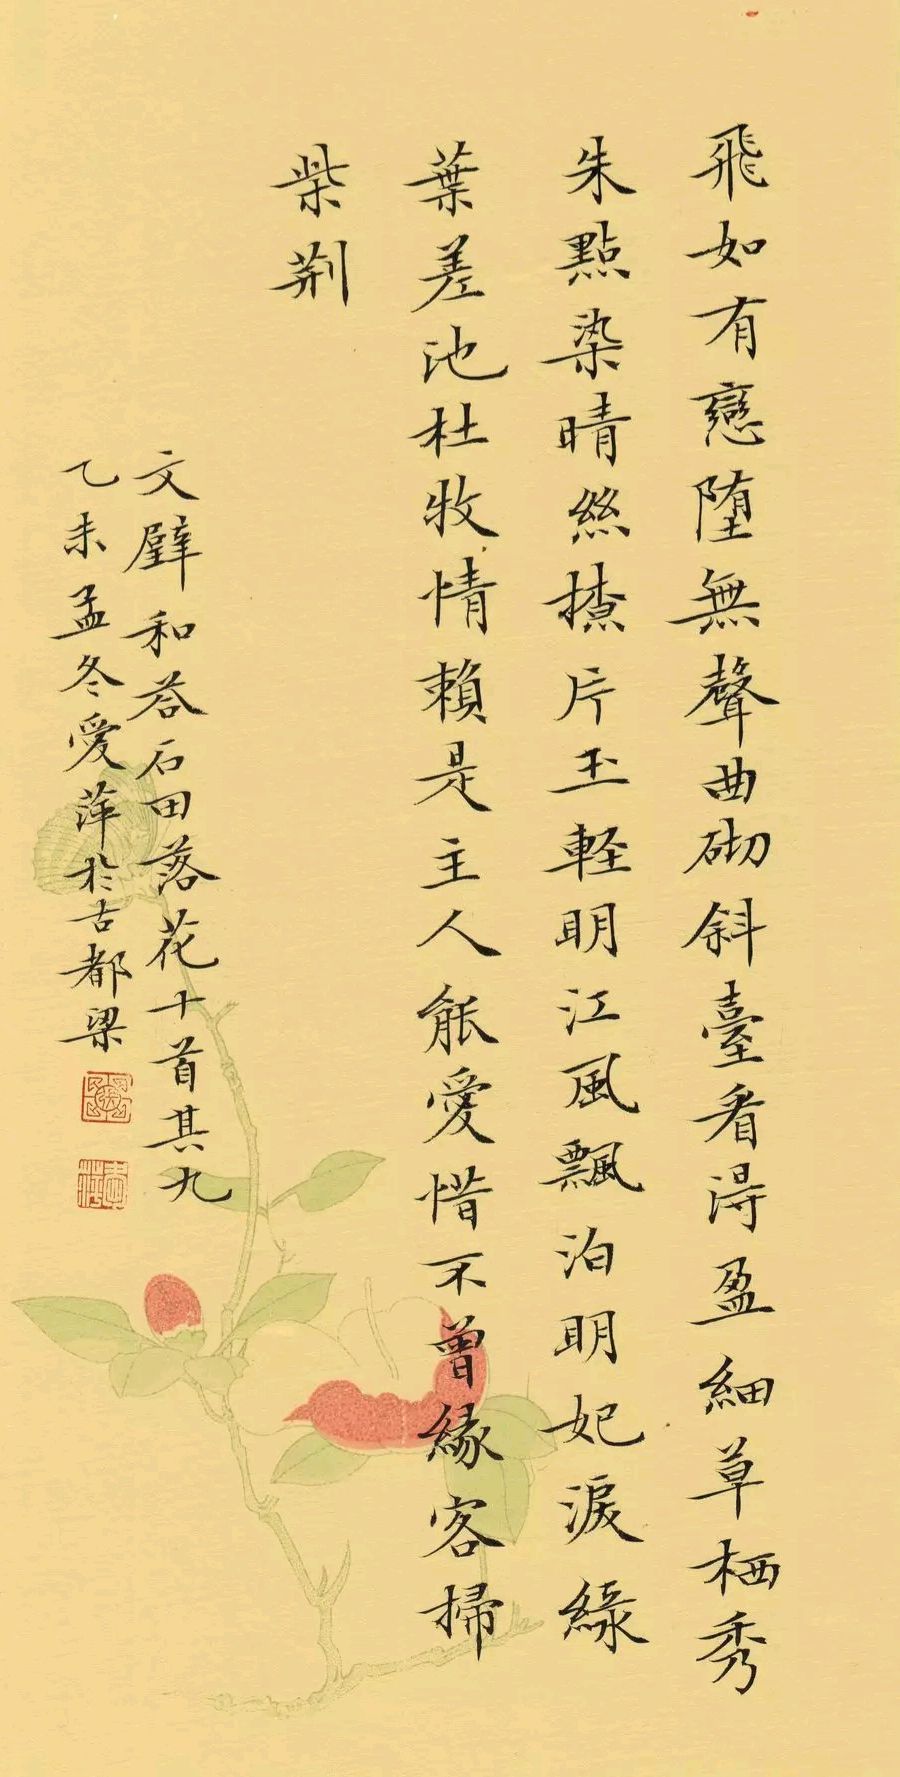 飛如有戀墮無聲曲砌斜臺看得盈細草栖秀
朱點染晴絲撩片玉軽明江風飄泊明妃淚綠
葉差池杜牧情賴是主人能愛惜不曾緣客掃
柴荊
文璧和荅石田落花十首其九
乙未孟冬愛萍於古都梁